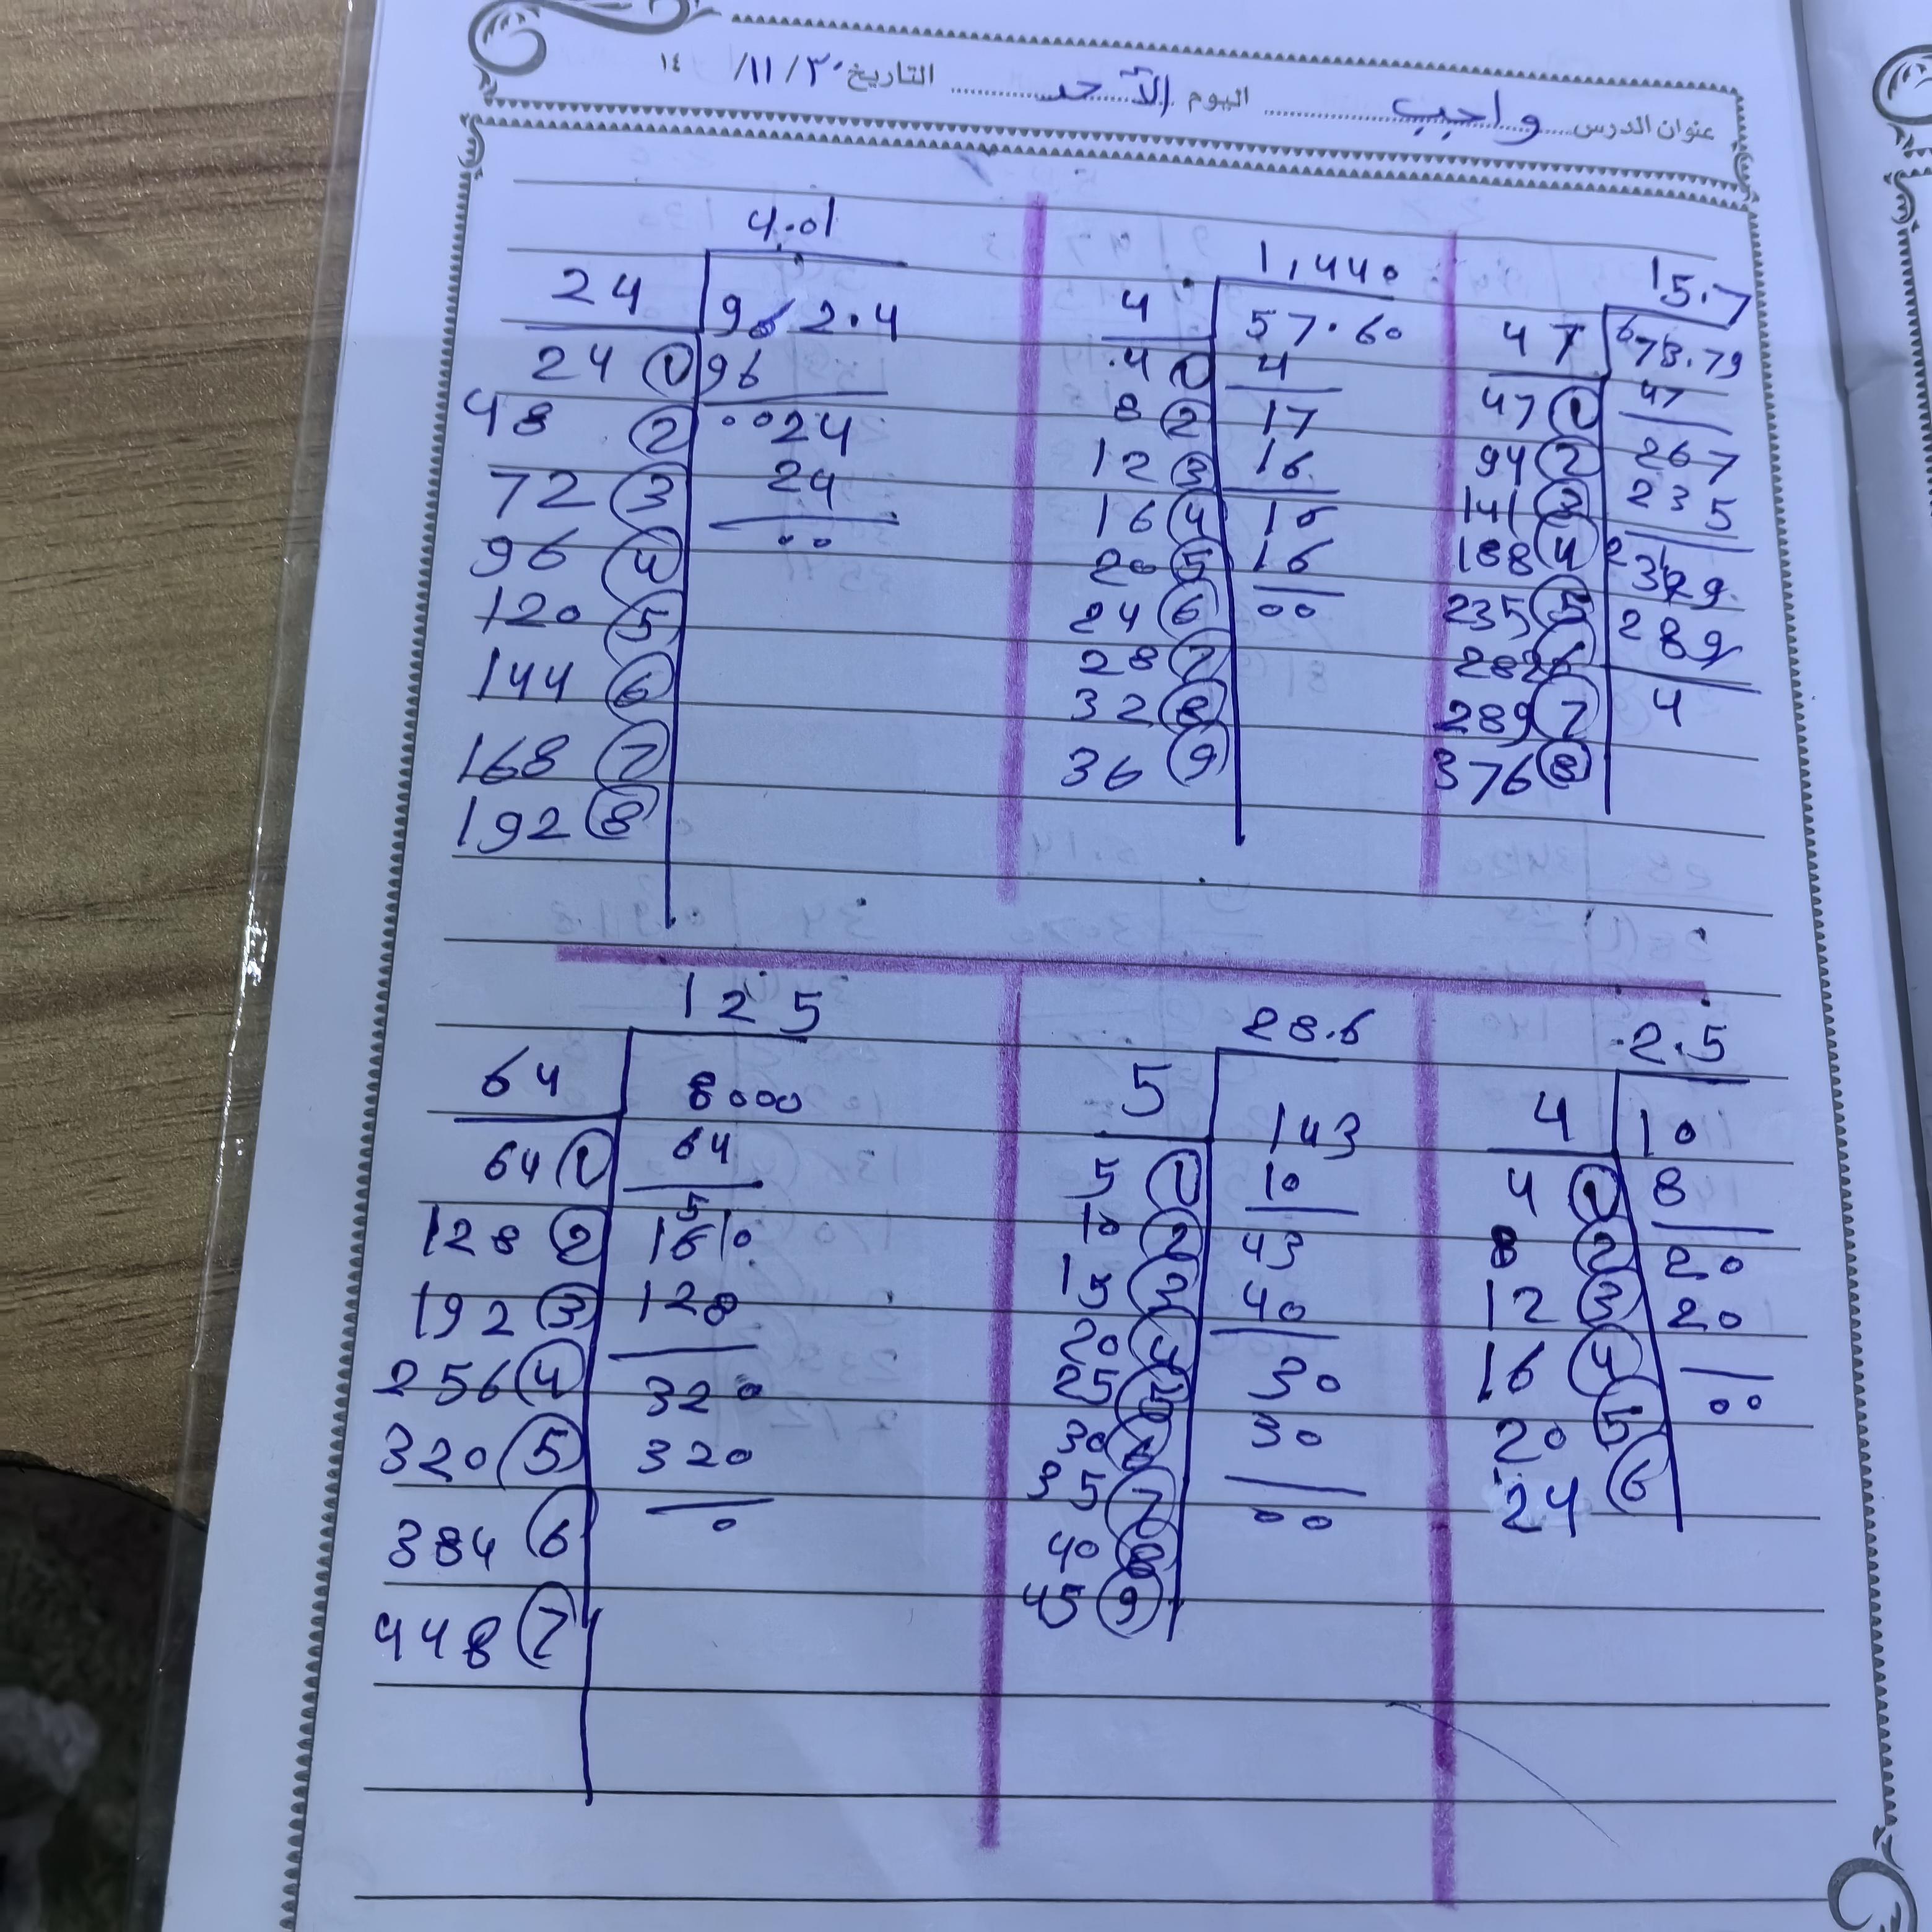 عنوان الدرس واجب اليوم الأحد التاريخ ٣٠/١١/ ١٤
4.01
24 962.4
24 1 96
48 2 0024
72 3 24
96 4 00
120 5
144 6
168 7
192 8
1,440
4 57.60
4 1 4
8 2 17
12 3 16
16 4 16
20 5 16
24 6 00
28 7
32 8
36 9
15.7
47 673.79
47 1 47
94 2 267
141 3 235
188 4 329
235 5 289
282 6 4
289 7
376 8
125
64 8000
64 1 64
128 2 160
192 3 128
256 4 320
320 5 320
384 6 0
448 7
28.6
5 143
5 1 10
10 2 43
15 3 40
20 4 30
25 5 30
30 6 00
35 7
40 8
45 9
2.5
4 10
4 1 8
8 2 20
12 3 20
16 4 00
20 5
24 6